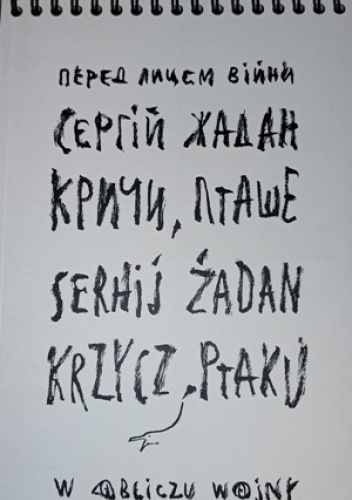 ПЕРЕД ЛИЦЕМ ВІЙНИ
СЕРГІЙ ЖАДАН
КРИЧИ, ПТАШЕ
SERHIJ ŻADAN
KRZYCZ, PTAKU
W OBLICZU WOJNY